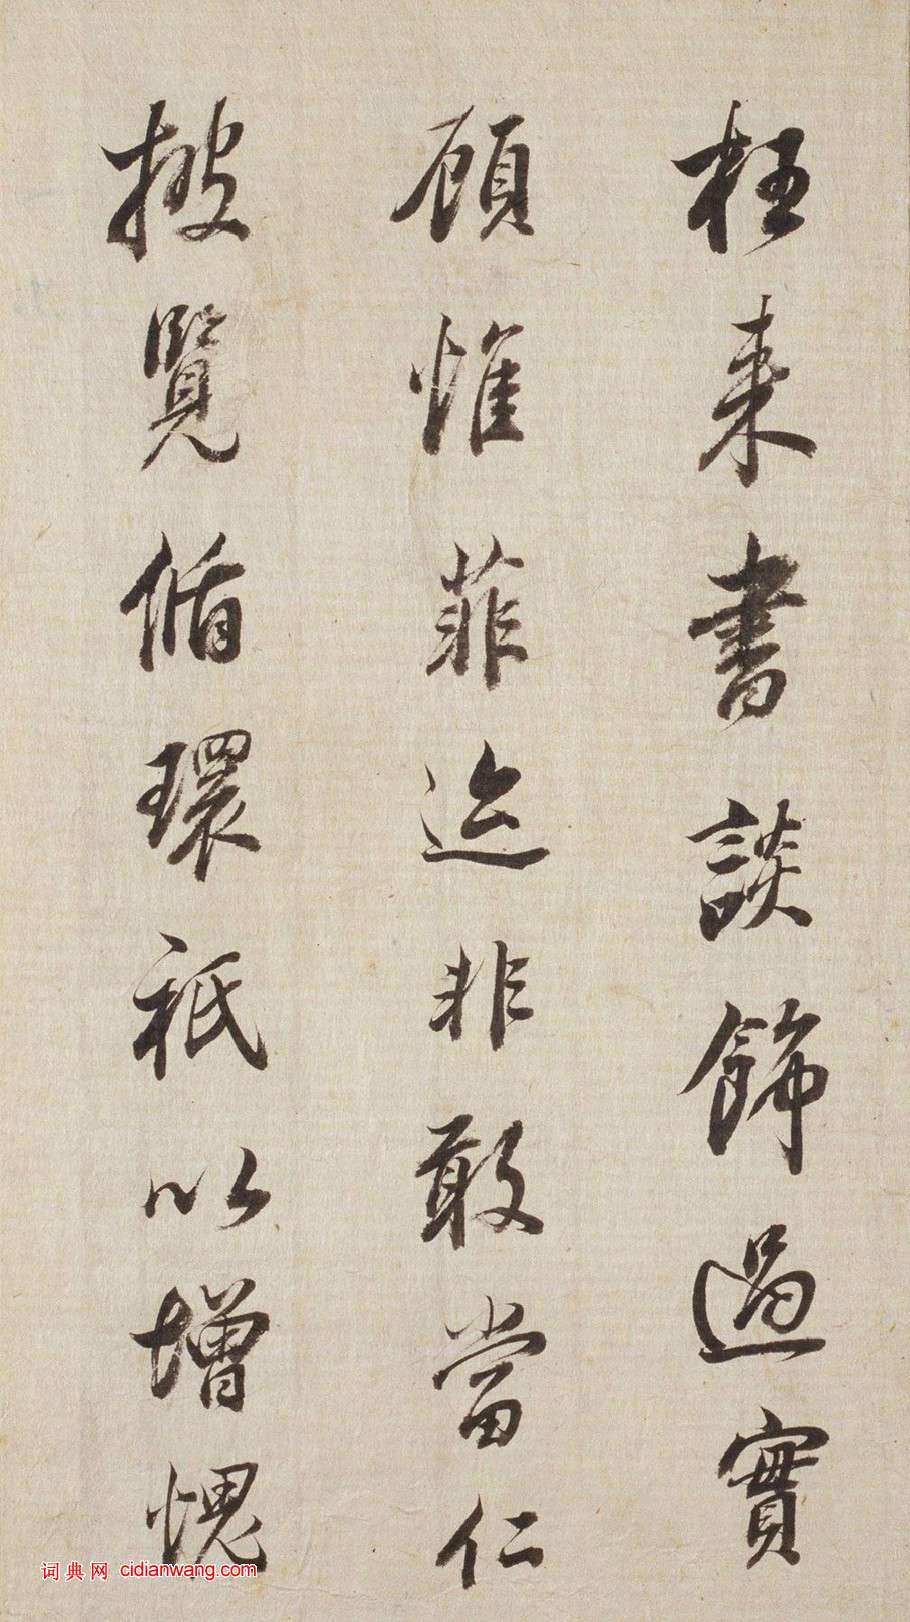 枉来書談飾過實
顧惟菲迹非敢當仁
披覽循環祇以增愧
词典网 cidianwang.com